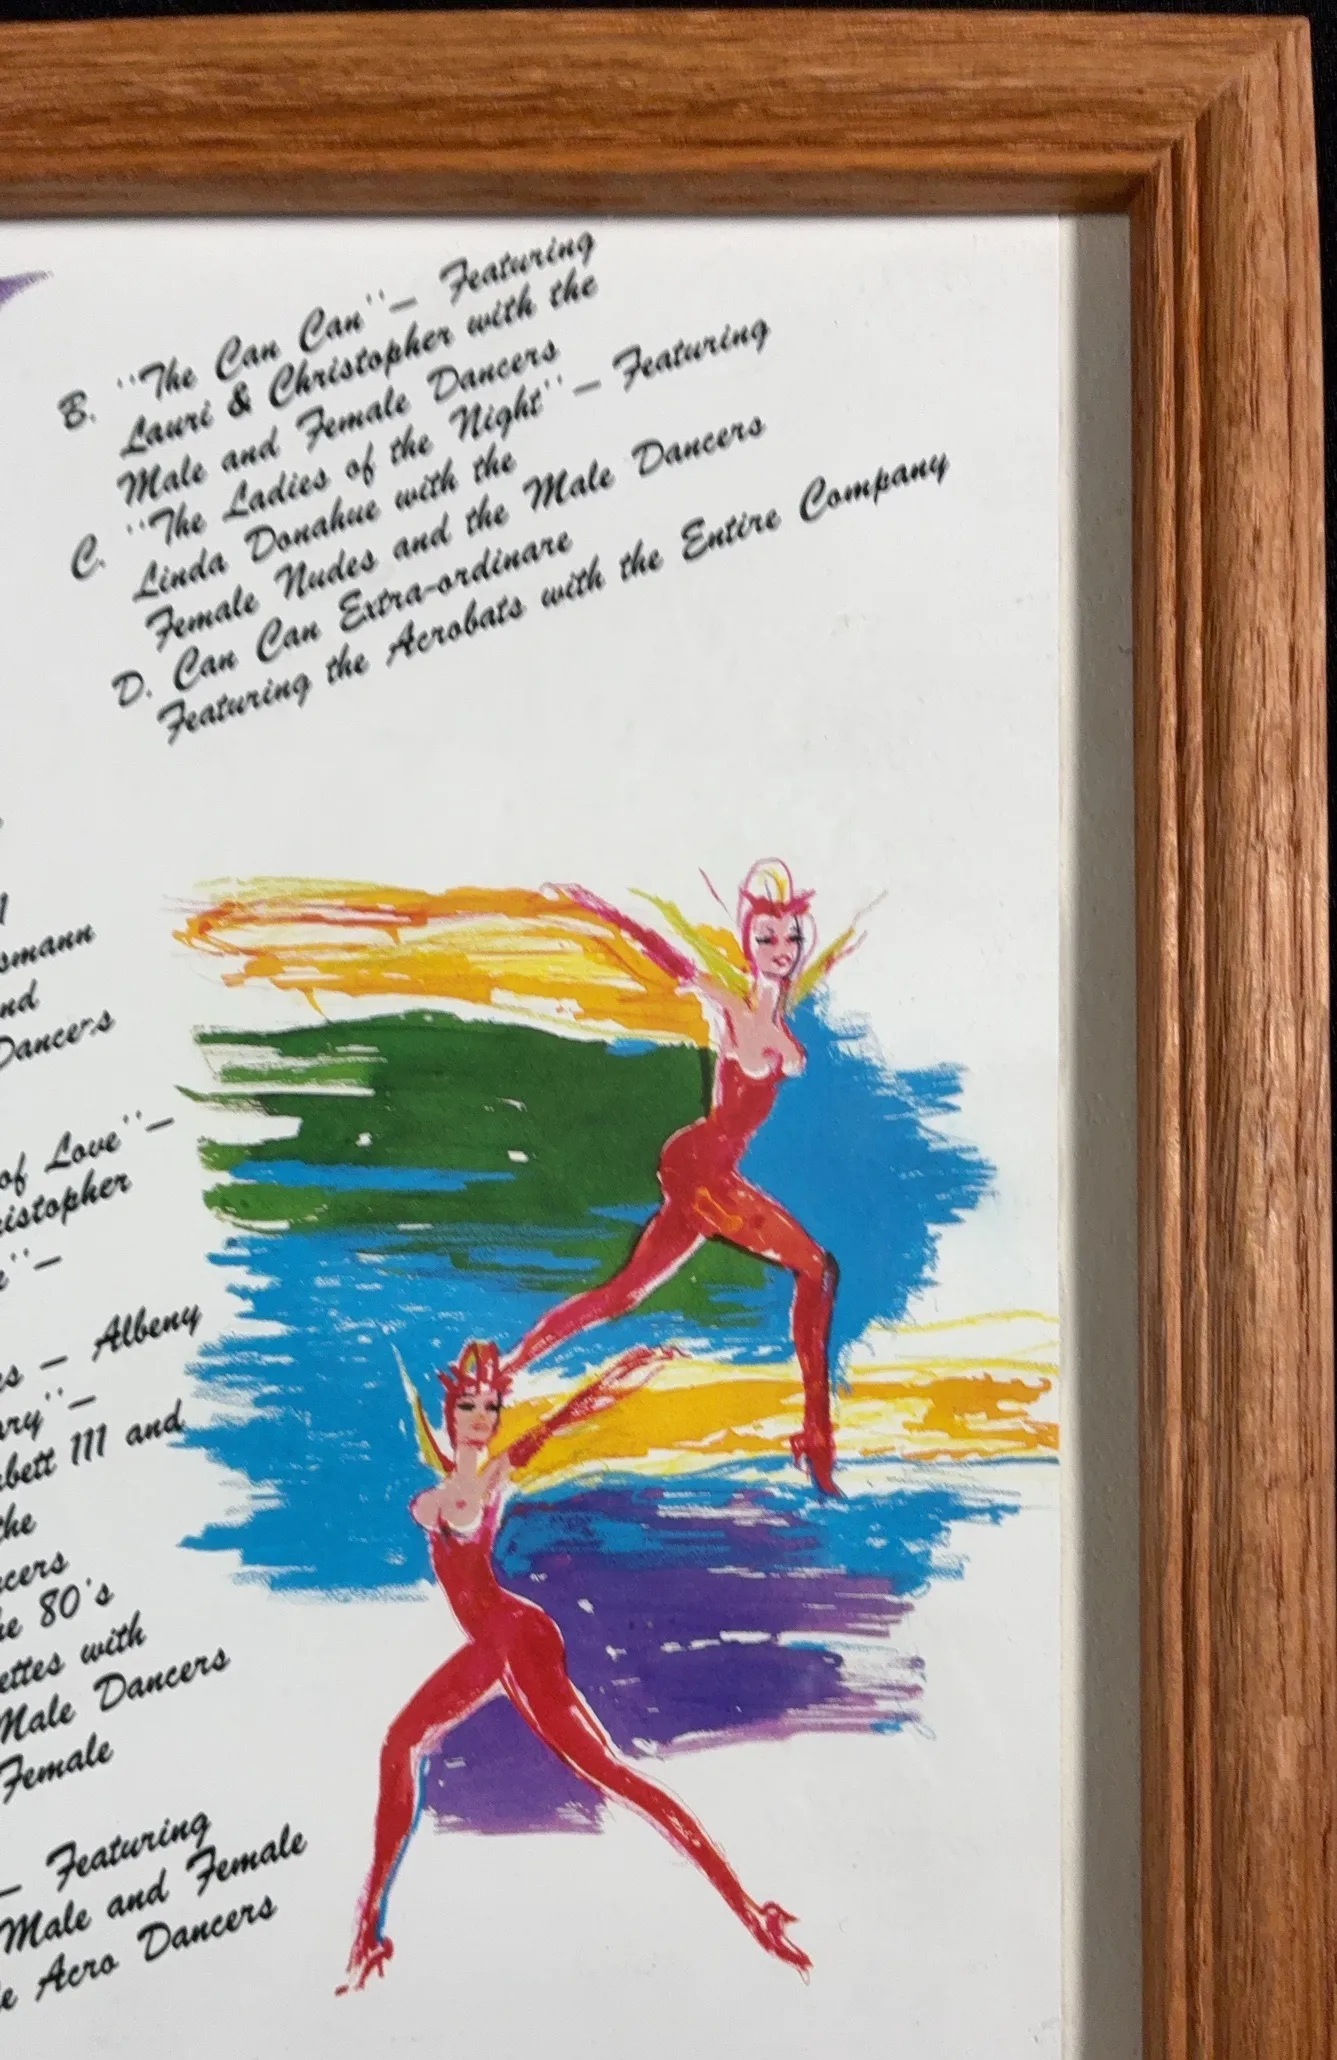 B. "The Can Can"— Featuring
Lauri & Christopher with the
Male and Female Dancers
C. "The Ladies of the Night"— Featuring
Linda Donahue with the
Female Nudes and the Male Dancers
D. Can Can Extra-ordinare
Featuring the Acrobats with the Entire Company
smann
nd
Dancers
of Love"—
istopher
"—
s — Albeny
ary"—
bett 111 and
the
cers
he 80's
ettes with
Male Dancers
Female
— Featuring
Male and Female
e Acro Dancers